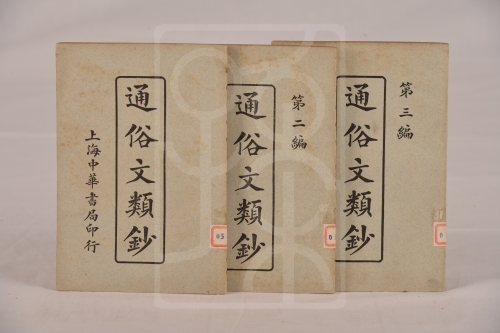 通俗文類鈔
上海中華書局印行
第二編
通俗文類鈔
第三編
通俗文類鈔